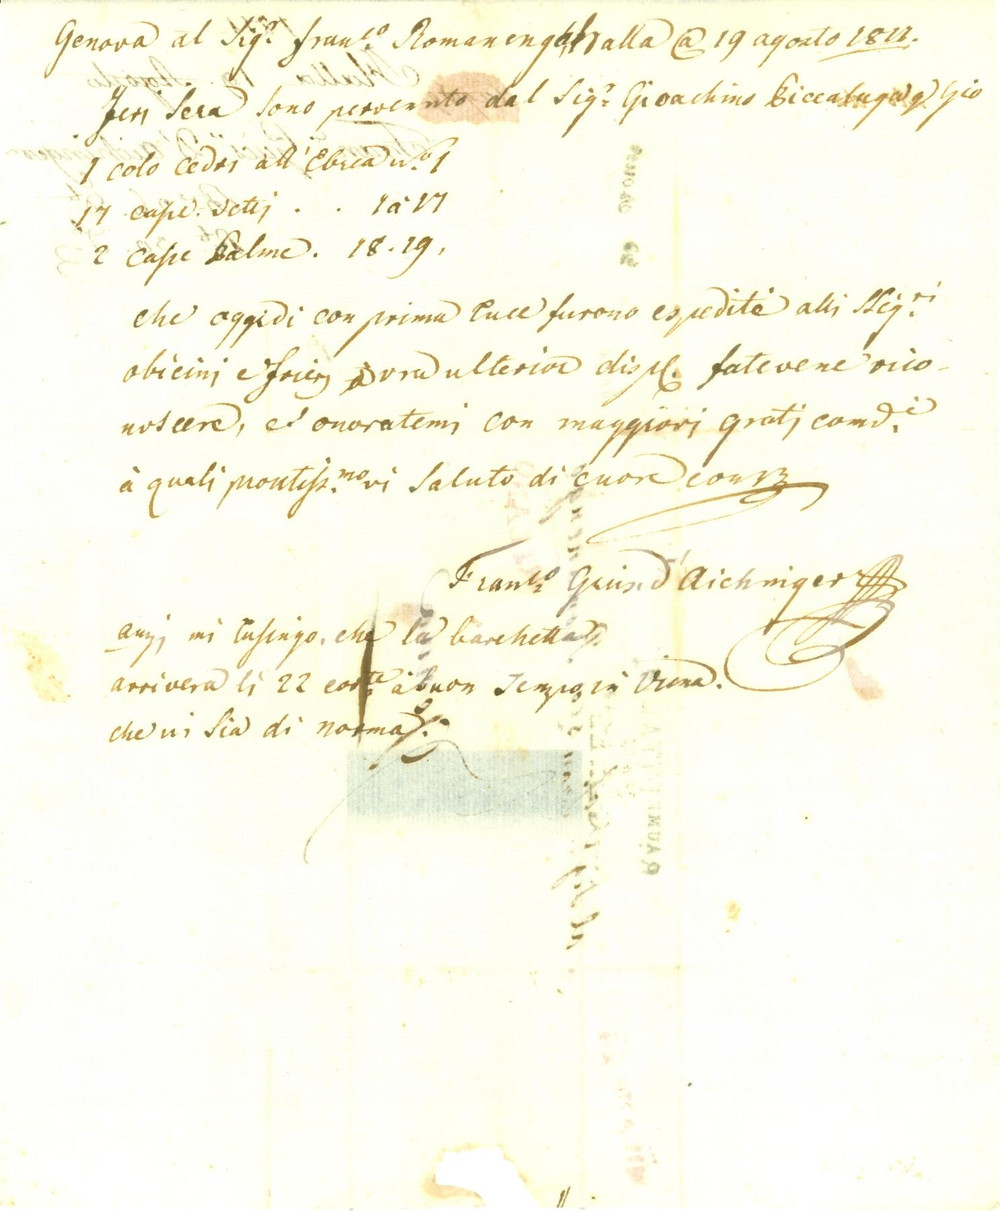 Genova al Sig.r Fran.co Romanengh Halla @ 19 agosto 1822.
Jeri Sera Sono pervenuto dal Sig.r Gioachino Biccaluga q. Gio
1 colo Cedri all'Ebrea n.o 1
17 case detti . . 1 à 17
2 case Palme . 18.19,
che oggidi con prima luce furono espedite alli Sig.ri
Obicini e à vra ulterior disp. fatevene rico-
noscere, ed onoratemi con maggiori grati comdi
à quali prontiss.mo vi Saluto di cuore
Fran.co Gius. d'Aichinger
anzi mi lusingo, che la barchetta
arriverà li 22 corte à buon Tempo in
che vi Sia di norma